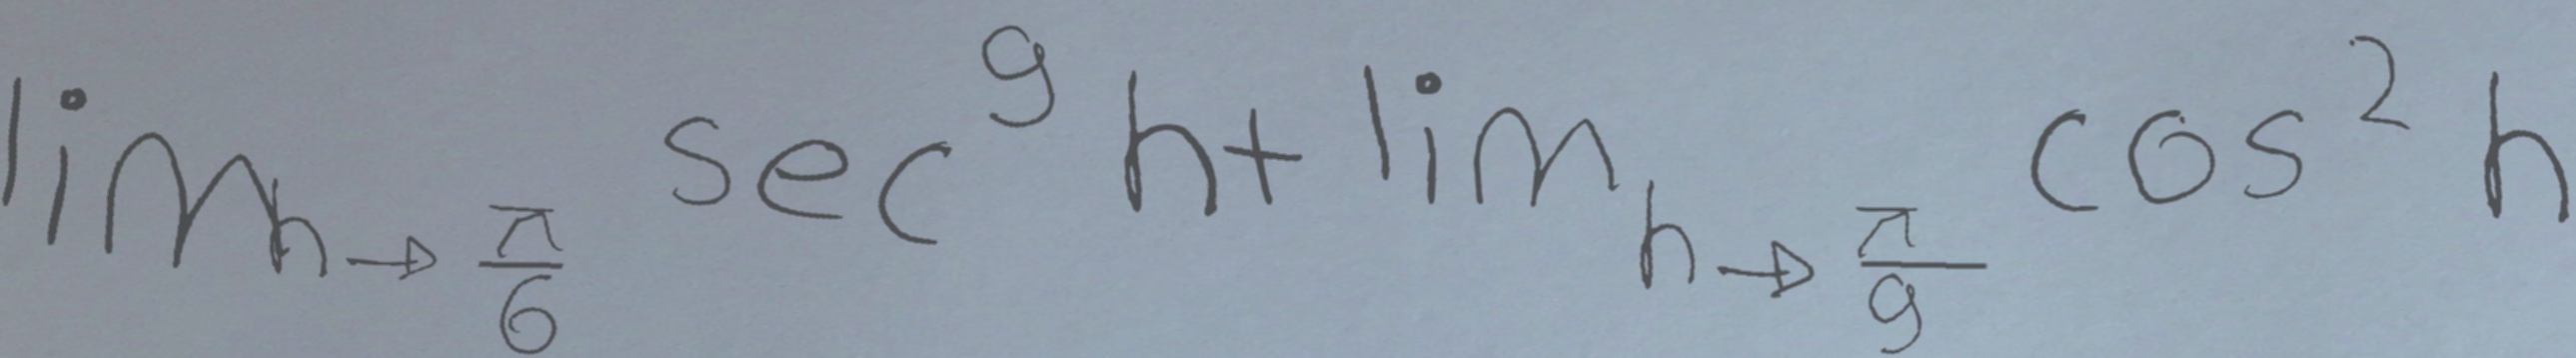 lim_{h→\frac{π}{6}} sec^9 h + lim_{h→\frac{π}{9}} cos^2 h